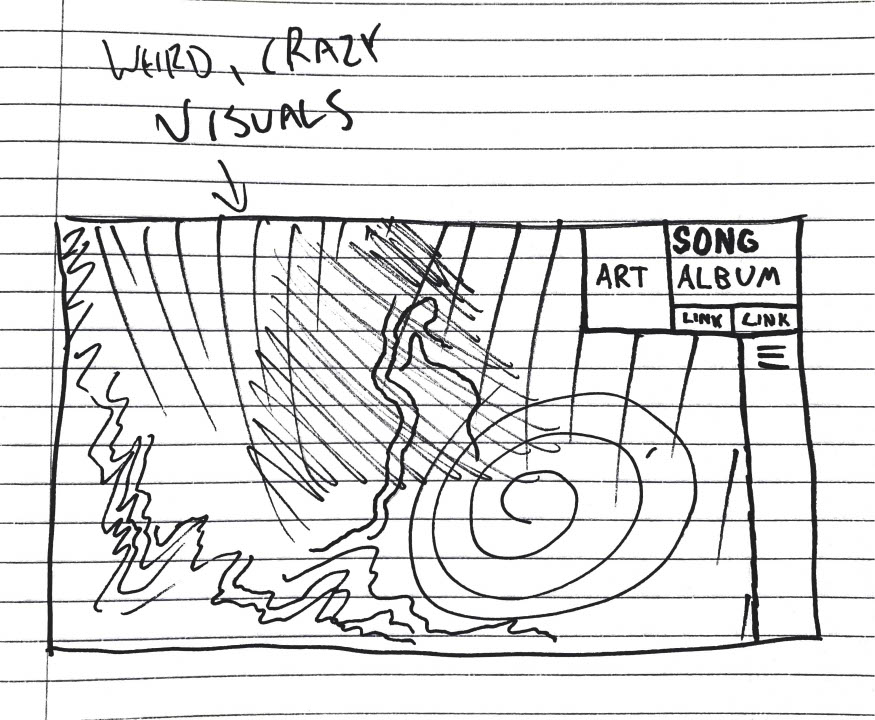 WEIRD, CRAZY
VISUALS
SONG
ART ALBUM
LINK LINK